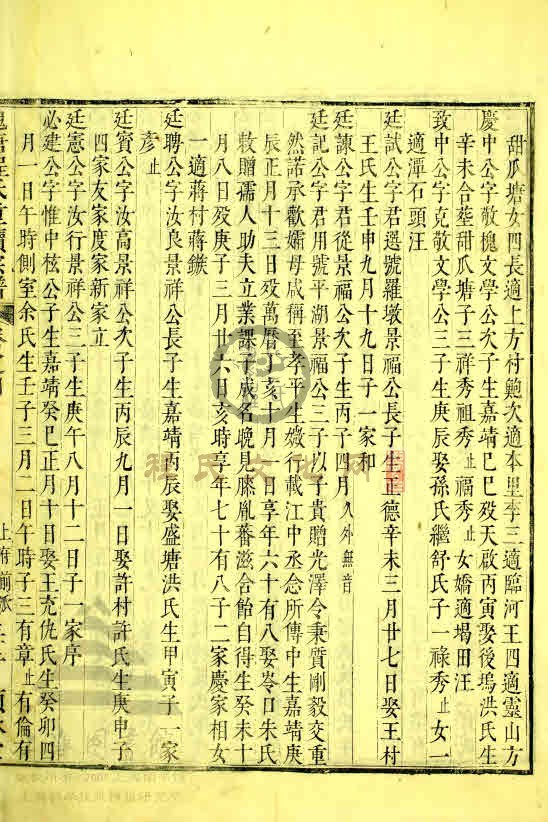 甜瓜塘女四長適上方村鮑次適本里李三適臨河王四適靈山方
慶中公字敬槐文學公次子生嘉靖己巳殁天啟丙寅娶後塢洪氏生
辛未合葬甜瓜塘子三祥秀祖秀止福秀止女嬌適塌田汪
致中公字克敬文學公三子生庚辰娶孫氏繼舒氏子一祿秀止女一
適潭石頭汪
廷試公字君選號羅墩景福公長子生正德辛未三月廿七日娶王村
王氏生壬申九月十九日子一家和
廷諫公字君從景福公次子生丙子四月久外無音
廷記公字君用號平湖景福公三子以子貴贈光澤令秉質剛毅交重
然諾承歡孀母咸稱至孝平生媺行載江中丞念所傳中生嘉靖庚
辰正月十三日殁萬曆丁亥十月 日享年六十有八娶岑口朱氏
敕贈孺人助夫立業課子成名晚見賸胤蕃滋合飴自得生癸未十
月八日殁庚子三月廿六日亥時享年七十有八子二家慶家相女
一適蔣村蔣鏃
廷聘公字汝良景祥公長子生嘉靖丙辰娶盛塘洪氏生甲寅子一家
彥止
廷賓公字汝高景祥公次子生丙辰九月一日娶許村許氏生庚申子
四家友家度家新家立
廷憲公字汝行景祥公三子生庚午八月十二日子一家序
必建公字惟中樁公子生嘉靖癸巳正月十日娶王充仇氏生癸卯四
月一日午時側室余氏生壬子三月二日午時子三有章止有倫有
程氏重續宗譜
上府前派
程氏文化网